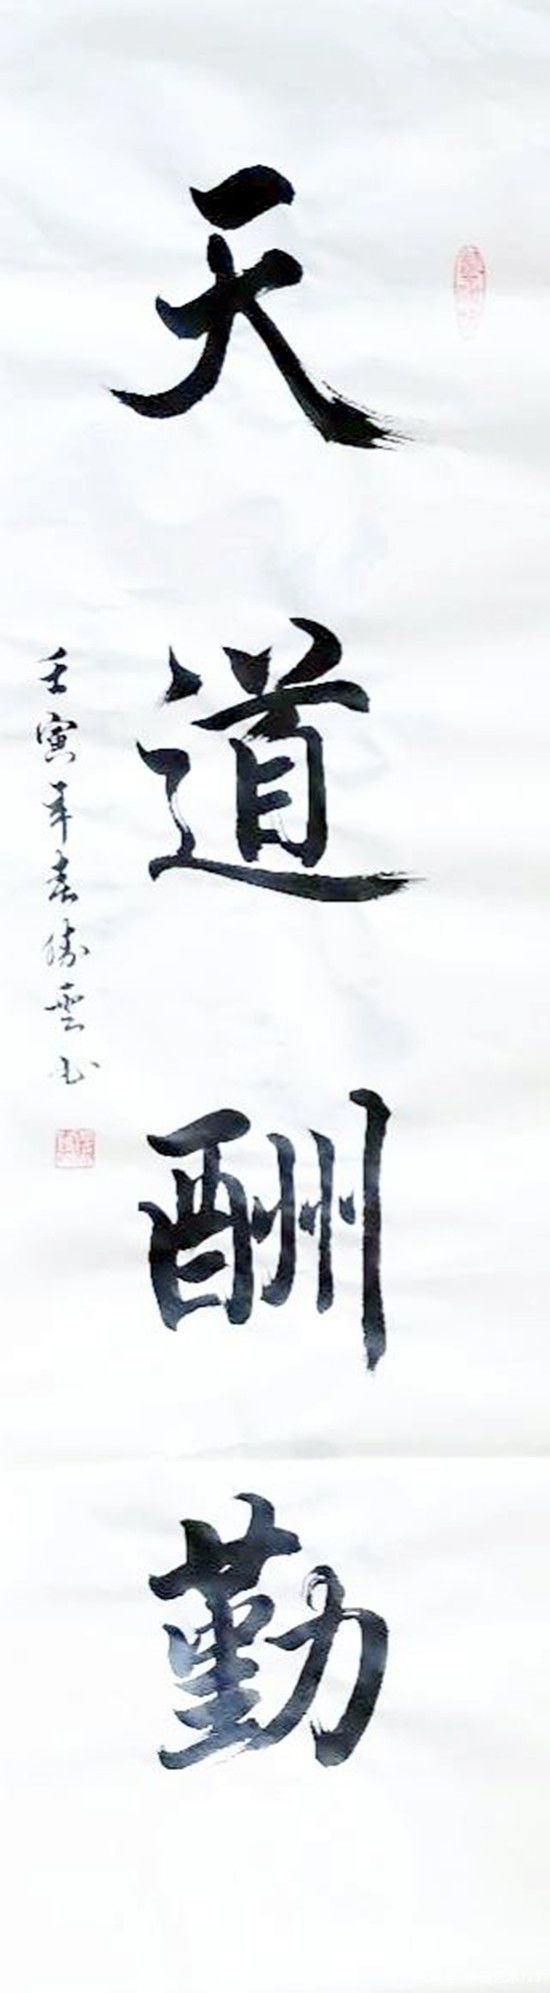 天道酬勤
壬寅年春勝雲书